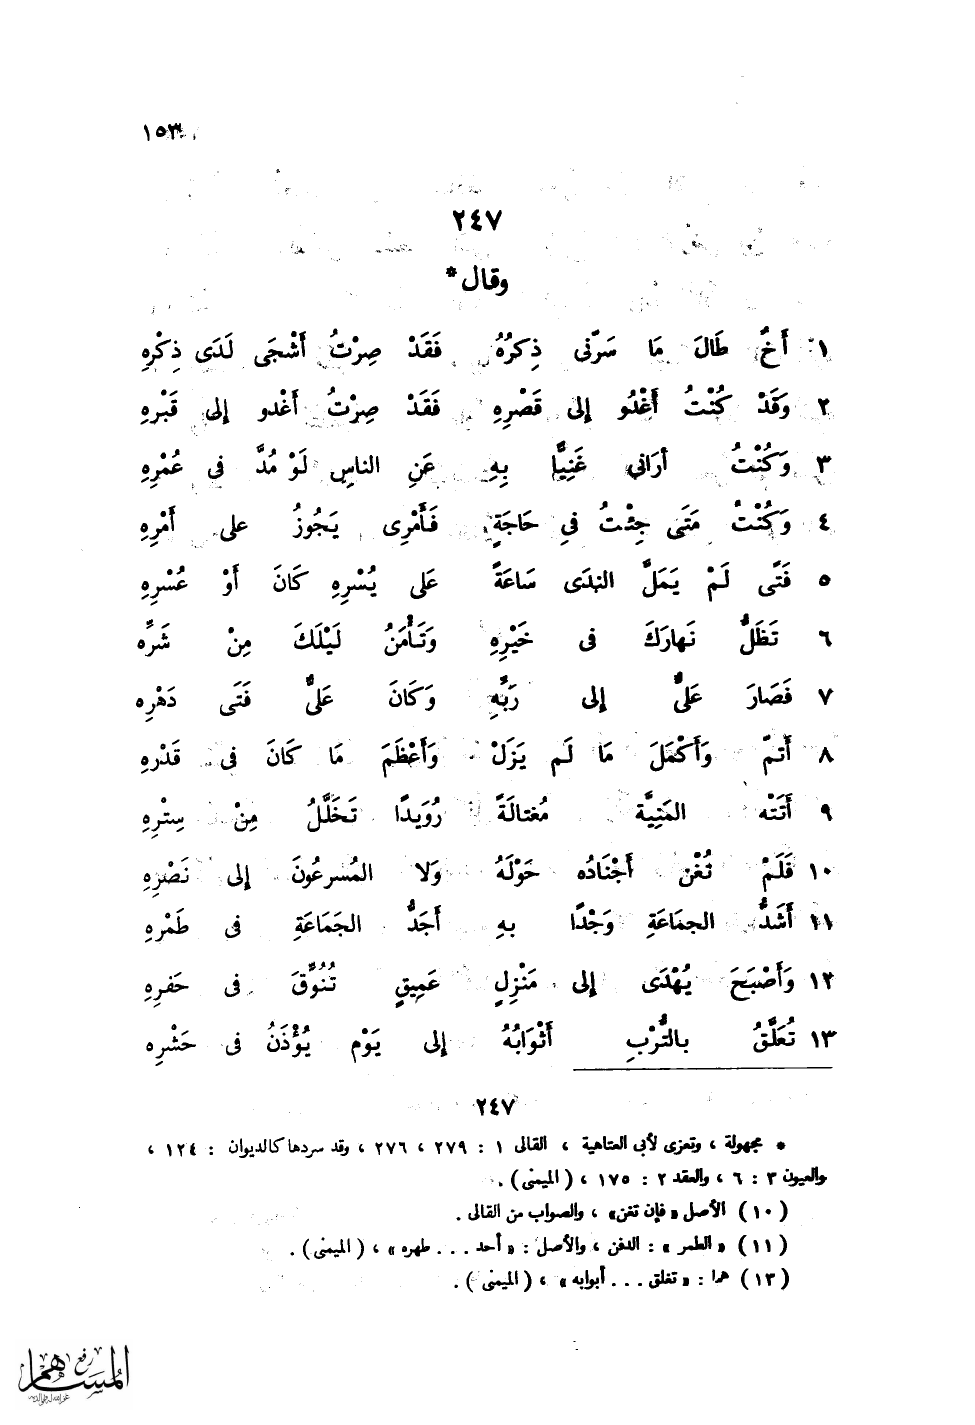 ١٥٣
٢٤٧
وقال*
١ أَخٌ طَالَ مَا سَرّنى ذِكرُهُ فَقَدْ صِرْتُ أَشْجَى لَدَى ذِكْرِهِ
٢ وَقَدْ كُنْتُ أَغْدُو إلى قَصْرِهِ فَقَدْ صِرْتُ أَغْدو إلى قَبْرِهِ
٣ وَكُنْتُ أرَانى غَنِيًّا بِهِ عَنِ الناسِ لَوْ مُدَّ فى عُمْرِهِ
٤ وَكُنْتُ مَتَى جِئْتُ فى حَاجَةٍ فَأَمْرِى يَجُوزُ على أَمْرِهِ
٥ فَتًى لَمْ يَمَلَّ الندَى سَاعَةً عَلى يُسْرِهِ كَانَ أَوْ عُسْرِهِ
٦ تَظَلُّ نَهارَكَ فى خَيْرِهِ وَتَأْمَنُ لَيْلَكَ مِنْ شَرِّه
٧ فَصَارَ عَلىٌّ إلى رَبِّهِ وَكَانَ عَلىٌّ فَتَى دَهْرِه
٨ أَتمّ وَأَكْمَلَ مَا لَم يَزَلْ وَأَعْظَمَ مَا كَانَ فى قَدْرِهِ
٩ أَتَتْه المَنِيَّة مُغتالَةً رُوَيدًا تَخَلَّلُ مِنْ سِتْرِهِ
١٠ فَلَمْ تُغْنِ أَجْنَادُه حَوْلَهُ وَلا المُسرعُونَ إلى نَصْرِهِ
١١ أَشَدُّ الجمَاعَةِ وَجْدًا بهِ أَجَدُّ الجَمَاعَةِ فى طَمْرِهِ
١٢ وَأَصْبَحَ يُهْدَى إلى مَنْزِلٍ عَمِيقٍ تُنُوِّقَ فى حَفرِهِ
١٣ تُعَلَّقُ بالتُّرْبِ أَثْوَابُهُ إلى يَوْم يُؤْذَنُ فى حَشْرِه
٢٤٧
* مجهولة ، وتعزى لأبى العتاهية ، القالى ١ : ٢٧٩ ، ٢٧٦ ، وقد سردها كالديوان : ١٢٤ ،
والعيون ٣ : ٦ ، والعقد ٢ : ١٧٥ ، ( الميمنى ) .
( ١٠ ) الأصل « فإن تغن » ، والصواب من القالى .
( ١١ ) « الطمر » : الدفن ، والأصل : « أحد . . . طهره » ، ( الميمنى ) .
( ١٣ ) هما : « تغلق . . . أبوابه » ، ( الميمنى ) .